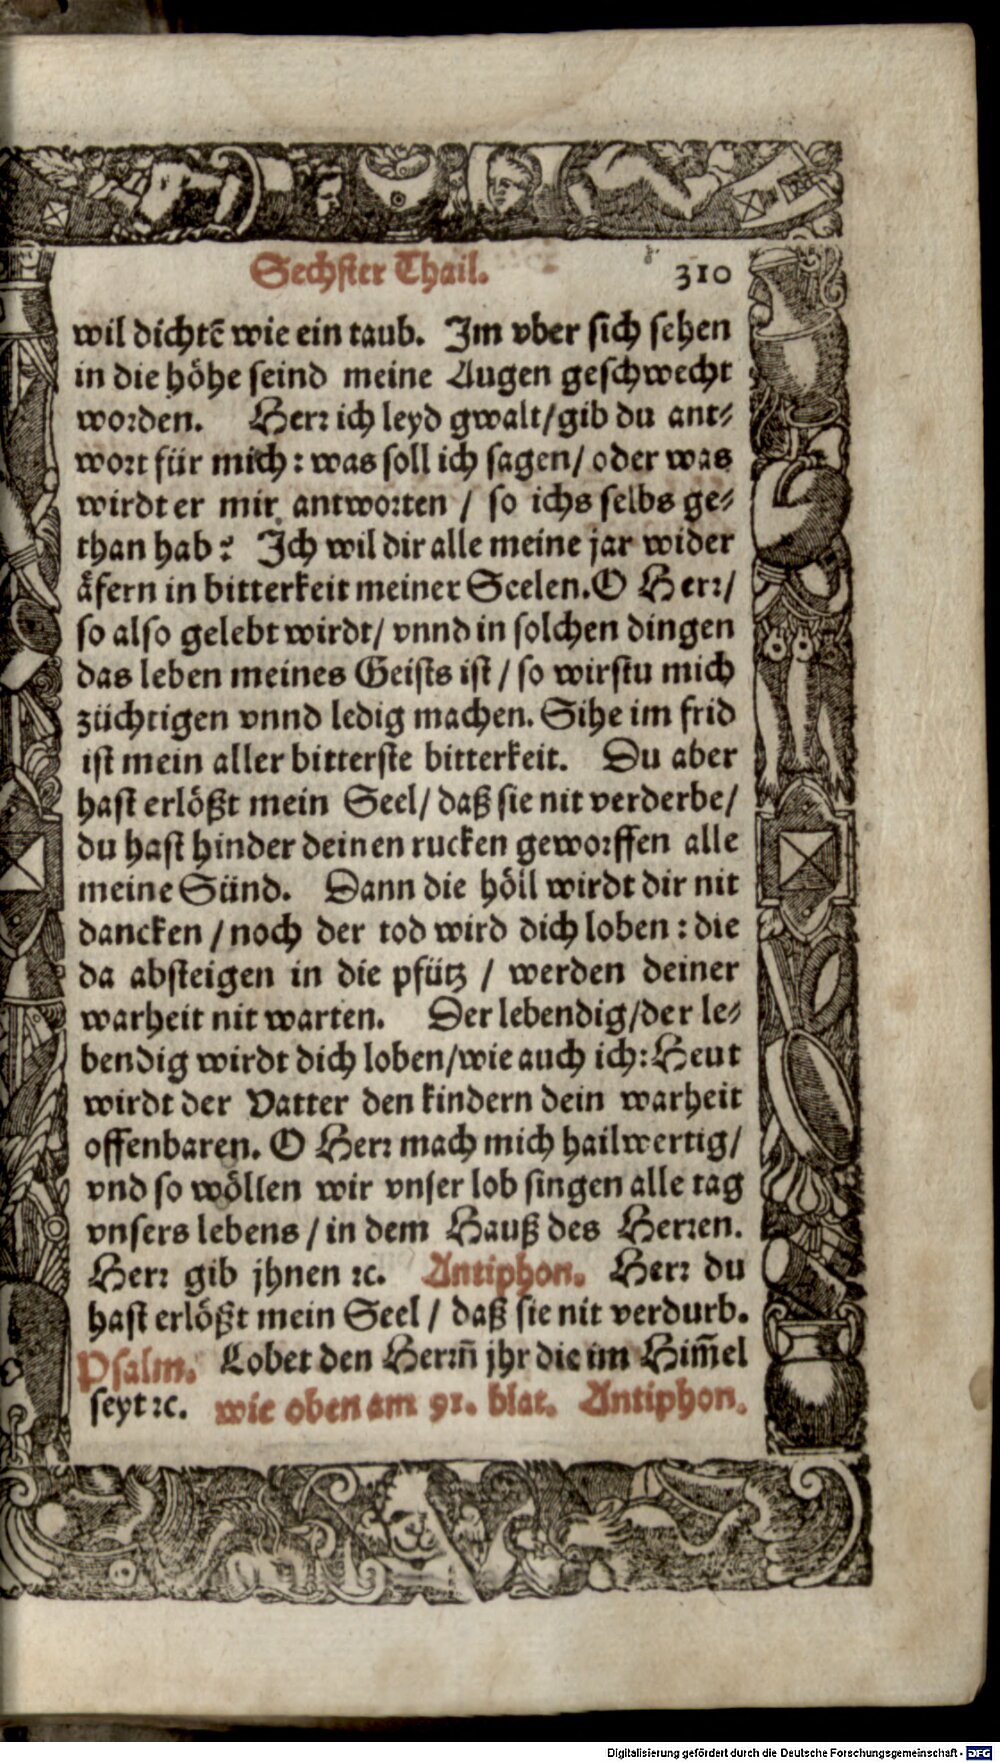 Sechster Thail. 310
wil dichtẽ wie ein taub. Im vber sich sehen
in die höhe seind meine Augen geschwecht
worden. Herr ich leyd gwalt/gib du ant⸗
wort für mich: was soll ich sagen/ oder was
wirdt er mir antworten / so ichs selbs ge⸗
than hab? Ich wil dir alle meine jar wider
äfern in bitterkeit meiner Seelen. O Herr/
so also gelebt wirdt/ vnnd in solchen dingen
das leben meines Geists ist / so wirstu mich
züchtigen vnnd ledig machen. Sihe im frid
ist mein aller bitterste bitterkeit. Du aber
hast erlößt mein Seel/ daß sie nit verderbe/
du hast hinder deinen rucken geworffen alle
meine Sünd. Dann die höll wirdt dir nit
dancken / noch der tod wird dich loben : die
da absteigen in die pfütz / werden deiner
warheit nit warten. Der lebendig/der le⸗
bendig wirdt dich loben/wie auch ich: Heut
wirdt der Vatter den kindern dein warheit
offenbaren. O Herr mach mich hailwertig/
vnd so wöllen wir vnser lob singen alle tag
vnsers lebens / in dem Hauß des Herren.
Herr gib jhnen ꝛc. Antiphon. Herr du
hast erlößt mein Seel / daß sie nit verdurb.
Psalm. Lobet den Herrñ jhr die im Him̃el
seyt ꝛc. wie oben am 91. blat. Antiphon.
Digitalisierung gefördert durch die Deutsche Forschungsgemeinschaft - DFG